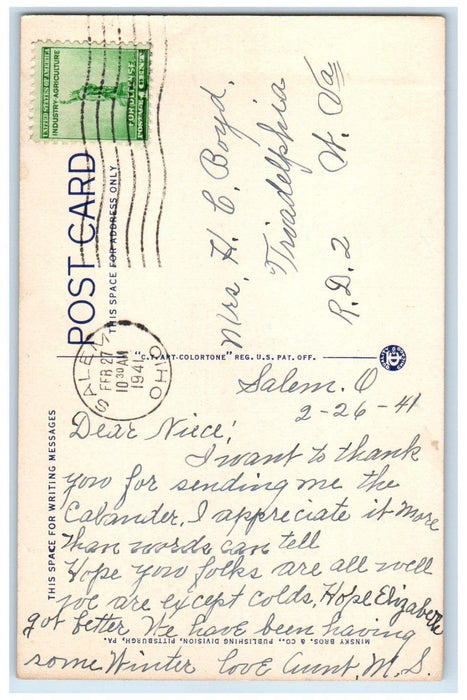 UNITED STATES OF AMERICA
INDUSTRY·AGRICULTURE
FOR DEFENSE
POSTAGE 1 CENT
POST CARD
THIS SPACE FOR ADDRESS ONLY
Mrs. H. C. Boyd,
Triadelphia
R.D. 2 W. Va
SALEM OHIO
FEB 27
10 30 AM
1941
"C.T. ART-COLORTONE" REG. U.S. PAT. OFF.
THIS SPACE FOR WRITING MESSAGES
Salem. O
2-26-41
Dear Niece!
I want to thank
you for sending me the
Calander, I appreciate it more
than words can tell
Hope you folks are all well
we are except colds, Hope Elizabeth
got better. We have been having
some Winter love Aunt, M.S.
MINSKY BROS. & CO., PUBLISHING DIVISION, PITTSBURGH, PA.